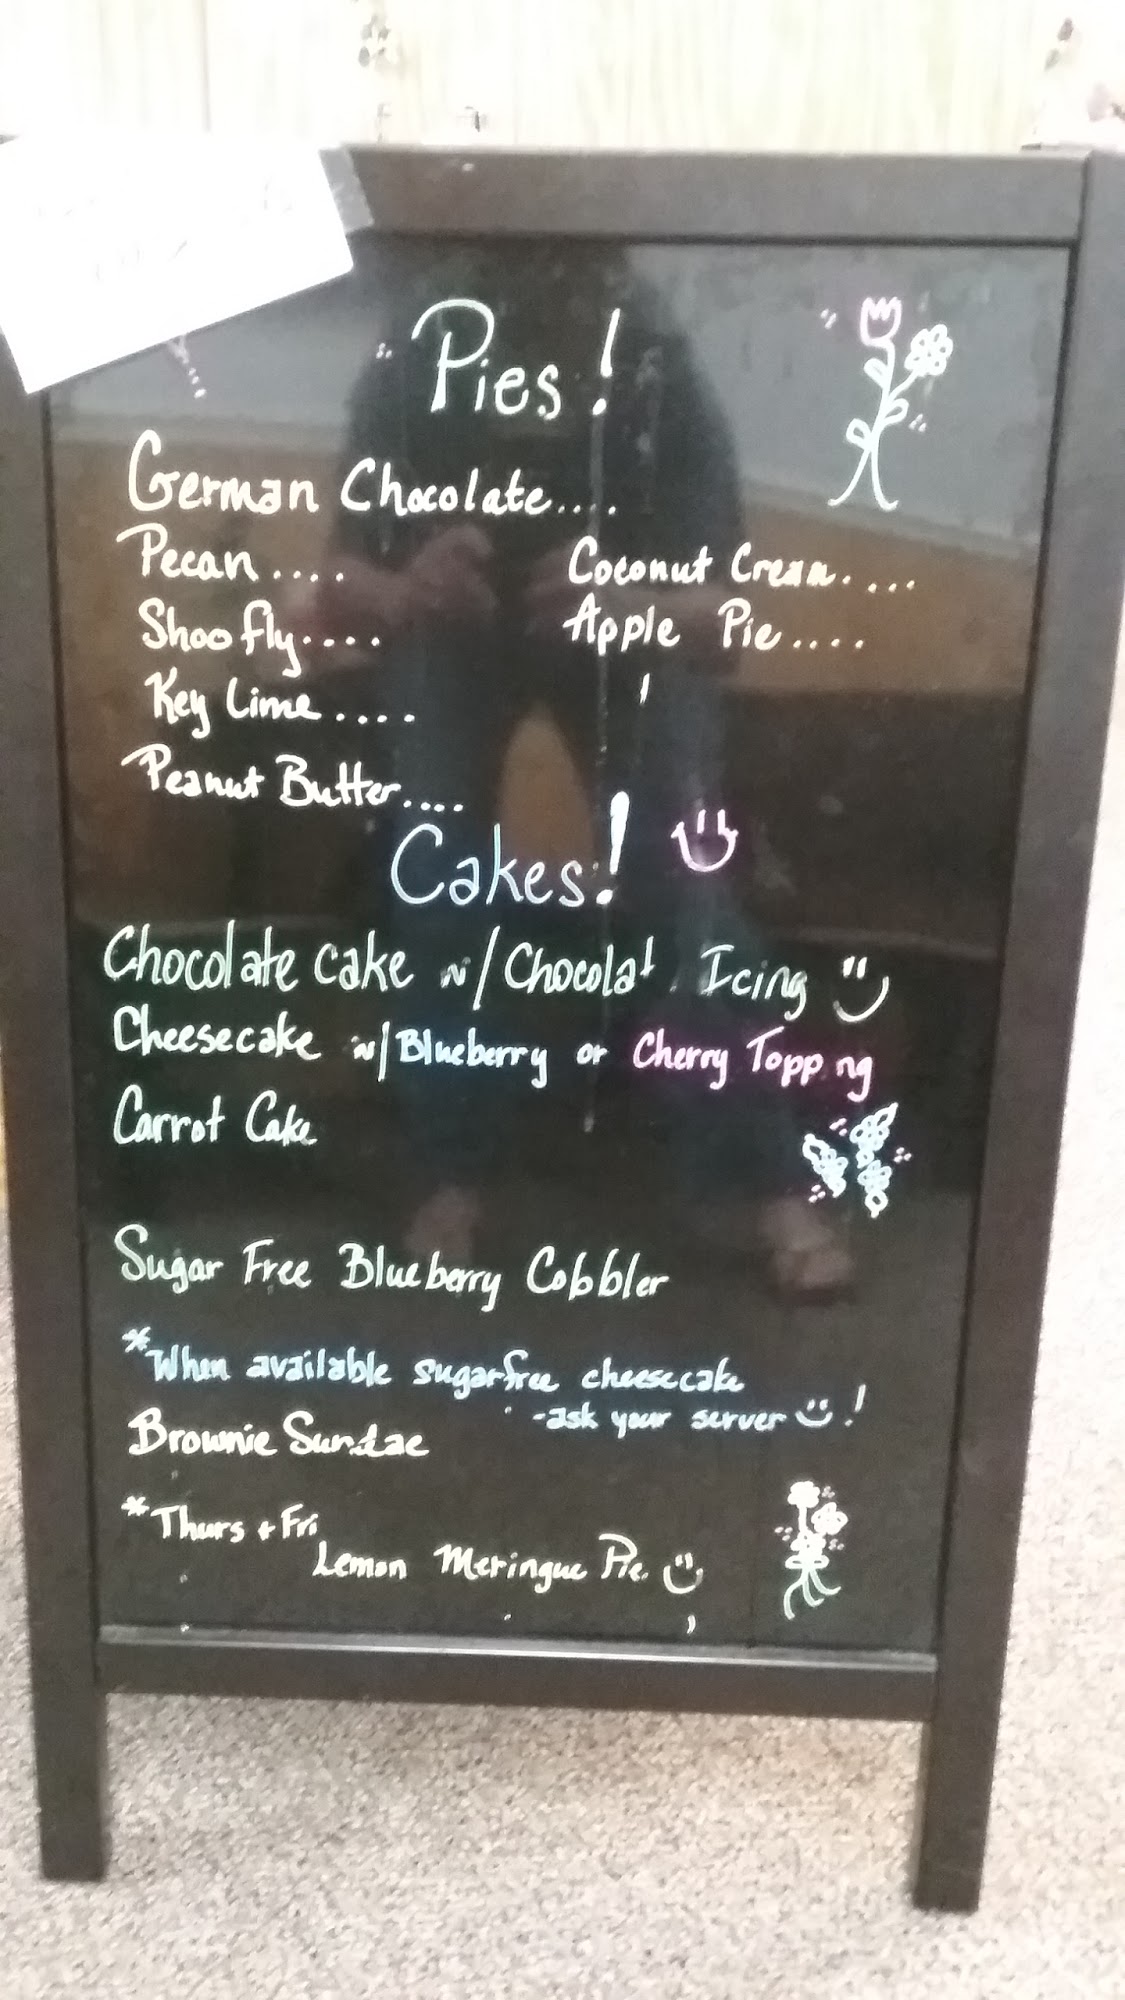 Pies!
German Chocolate....
Pecan....
Shoofly....
Key Lime....
Peanut Butter....
Coconut Cream....
Apple Pie....
Cakes!
Chocolate Cake w/Chocolat Icing
Cheesecake w/Blueberry or Cherry Topp ng
Carrot Cake
Sugar Free Blueberry Cobbler
*When available sugarfree cheesecake
-ask your server !
Brownie Sundae
*Thurs + Fri
Lemon Meringue Pie